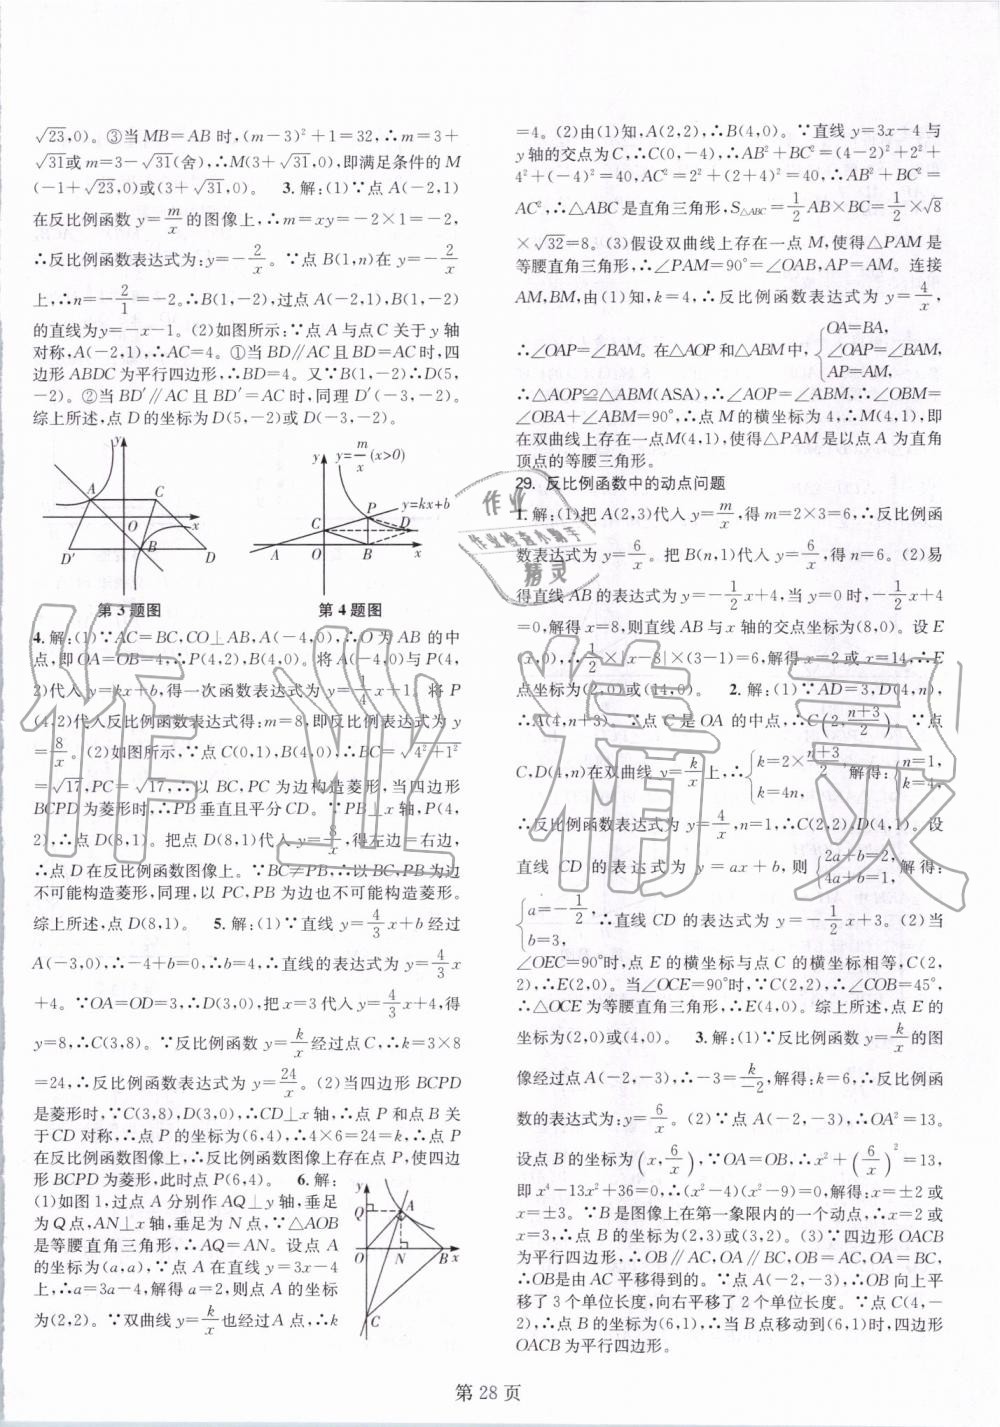 √23,0)。③当MB=AB时,(m-3)²+1=32,∴m=3+
√31或m=3-√31(舍),∴M(3+√31,0),即满足条件的M
(-1+√23,0)或(3+√31,0)。 3.解:(1)∵点A(-2,1)
在反比例函数y=m/x的图像上,∴m=xy=-2×1=-2,
∴反比例函数表达式为:y=-2/x。∵点B(1,n)在y=-2/x
上,∴n=-2/1=-2。∴B(1,-2),过点A(-2,1),B(1,-2)
的直线为y=-x-1。(2)如图所示:∵点A与点C关于y轴
对称,A(-2,1),∴AC=4。①当BD∥AC且BD=AC时,四
边形ABDC为平行四边形,∴BD=4。又∵B(1,-2)∴D(5,
-2)。②当BD′∥AC且BD′=AC时,同理D′(-3,-2)。
综上所述,点D的坐标为D(5,-2)或D(-3,-2)。
y
A
C
O
x
D′
B
D
第3题图
y
y=m/x(x>0)
P
y=kx+b
C
D
A
O
B
x
第4题图
4.解:(1)∵AC=BC,CO⊥AB,A(-4,0),∴O为AB的中
点,即OA=OB=4,∴P(4,2),B(4,0)。将A(-4,0)与P(4,
2)代入y=kx+b,得一次函数表达式为y=1/4x+1。将P
(4,2)代入反比例函数表达式得:m=8,即反比例表达式为y
=8/x。(2)如图所示,∵点C(0,1),B(4,0),∴BC=√4²+1²
=√17,PC=√17,∴以BC,PC为边构造菱形,当四边形
BCPD为菱形时,∴PB垂直且平分CD。∵PB⊥x轴,P(4,
2),∴点D(8,1)。把点D(8,1)代入y=8/x,得左边=右边,
∴点D在反比例函数图像上。∵BC≠PB,∴以BC,PB为边
不可能构造菱形,同理,以PC,PB为边也不可能构造菱形。
综上所述,点D(8,1)。 5.解:(1)∵直线y=4/3x+b经过
A(-3,0),∴-4+b=0,∴b=4,∴直线的表达式为y=4/3x
+4。∵OA=OD=3,∴D(3,0),把x=3代入y=4/3x+4,得
y=8,∴C(3,8)。∵反比例函数y=k/x经过点C,∴k=3×8
=24,∴反比例函数表达式为y=24/x。(2)当四边形BCPD
是菱形时,∵C(3,8),D(3,0),∴CD⊥x轴,∴点P和点B关
于CD对称,∴点P的坐标为(6,4),∴4×6=24=k,∴点P
在反比例函数图像上,∴反比例函数图像上存在点P,使四边
形BCPD为菱形,此时点P(6,4)。 6.解:
(1)如图1,过点A分别作AQ⊥y轴,垂足
为Q点,AN⊥x轴,垂足为N点,∵△AOB
是等腰直角三角形,∴AQ=AN。设点A
的坐标为(a,a),∵点A在直线y=3x-4
上,∴a=3a-4,解得a=2,则点A的坐标
为(2,2)。∵双曲线y=k/x也经过A点,∴k
y
Q
A
O
N
B
x
C
=4。(2)由(1)知,A(2,2),∴B(4,0)。∵直线y=3x-4与
y轴的交点为C,∴C(0,-4),∴AB²+BC²=(4-2)²+2²+
4²+(-4)²=40,AC²=2²+(2+4)²=40,∴AB²+BC²=
AC²,∴△ABC是直角三角形,S△ABC=1/2AB×BC=1/2×√8
×√32=8。(3)假设双曲线上存在一点M,使得△PAM是
等腰直角三角形,∴∠PAM=90°=∠OAB,AP=AM。连接
AM,BM,由(1)知,k=4,∴反比例函数表达式为y=4/x,
∴∠OAP=∠BAM。在△AOP和△ABM中,{OA=BA, ∠OAP=∠BAM, AP=AM,
∴△AOP≌△ABM(ASA),∴∠AOP=∠ABM,∴∠OBM=
∠OBA+∠ABM=90°,∴点M的横坐标为4,∴M(4,1),即
在双曲线上存在一点M(4,1),使得△PAM是以点A为直角
顶点的等腰三角形。
29. 反比例函数中的动点问题
1.解:(1)把A(2,3)代入y=m/x,得m=2×3=6,∴反比例函
数表达式为y=6/x。把B(n,1)代入y=6/x,得n=6。(2)易
得直线AB的表达式为y=-1/2x+4,当y=0时,-1/2x+4
=0,解得x=8,则直线AB与x轴的交点坐标为(8,0)。设E
(x,0),∴1/2×|x-8|×(3-1)=6,解得x=2或x=14,∴E
点坐标为(2,0)或(14,0)。 2.解:(1)∵AD=3,D(4,n),
∴A(4,n+3)。∵点C是OA的中点,∴C(2,(n+3)/2)。∵点
C,D(4,n)在双曲线y=k/x上,∴{k=2×(n+3)/2, k=4n, 解得:{n=1, k=4,
∴反比例函数表达式为y=4/x,n=1,∴C(2,2),D(4,1)。设
直线CD的表达式为y=ax+b,则{2a+b=2, 4a+b=1, 解得:
{a=-1/2, b=3, ∴直线CD的表达式为y=-1/2x+3。(2)当
∠OEC=90°时,点E的横坐标与点C的横坐标相等,C(2,
2),∴E(2,0)。当∠OCE=90°时,∵C(2,2),∴∠COB=45°,
∴△OCE为等腰直角三角形,∴E(4,0)。综上所述,点E的
坐标为(2,0)或(4,0)。 3.解:(1)∵反比例函数y=k/x的图
像经过点A(-2,-3),∴-3=k/-2,解得:k=6,∴反比例函
数的表达式为:y=6/x。(2)∵点A(-2,-3),∴OA²=13。
设点B的坐标为(x,6/x),∵OA=OB,∴x²+(6/x)²=13,
即x⁴-13x²+36=0,∴(x²-4)(x²-9)=0,解得:x=±2或
x=±3。∵B是图像上在第一象限内的一个动点,∴x=2或
x=3。∴点B的坐标为(2,3)或(3,2)。(3)∵四边形OACB
为平行四边形,∴OB∥AC,OA∥BC,OB=AC,OA=BC,
∴OB是由AC平移得到的。∵点A(-2,-3),∴OB向上平
移了3个单位长度,向右平移了2个单位长度。∵点C(4,-
2),∴点B的坐标为(6,1),∴当B点移动到(6,1)时,四边形
OACB为平行四边形。
作业
作业检查小助手
精灵
作业精灵
第28页